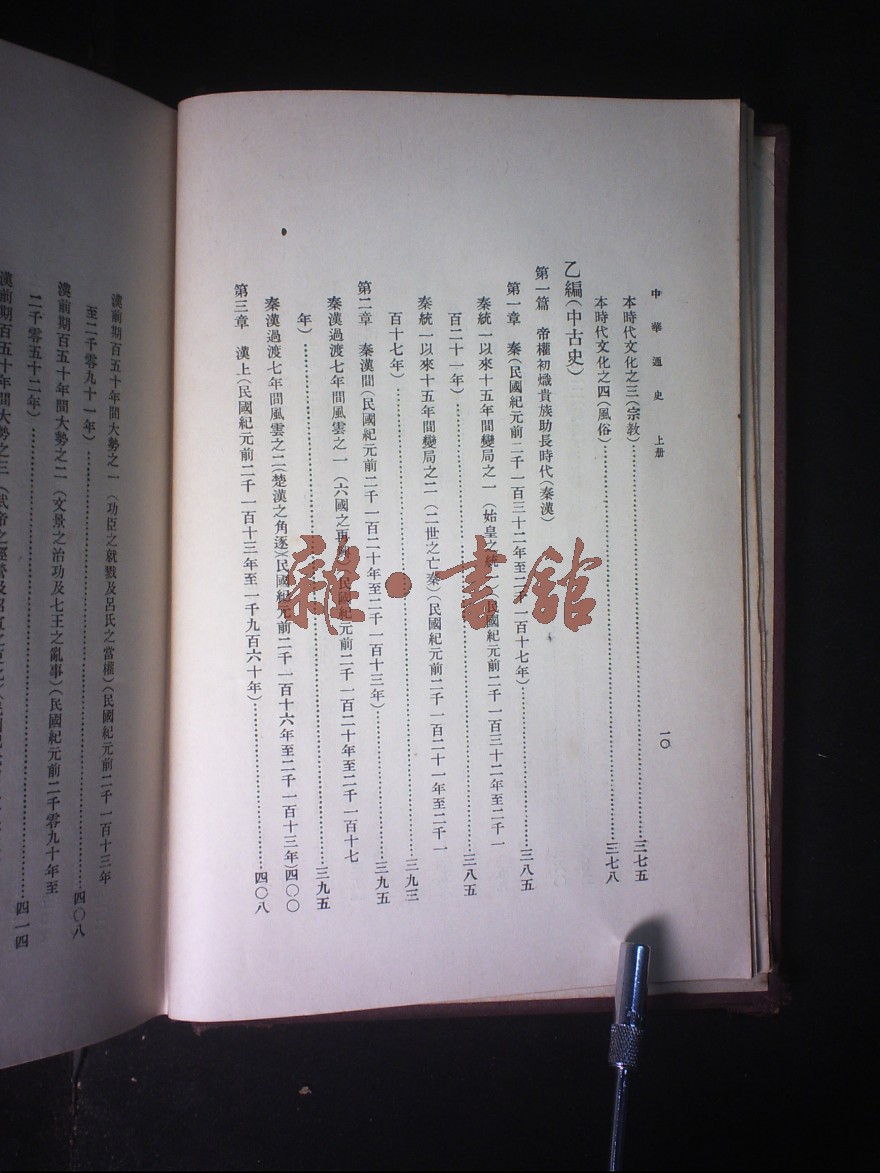 中華通史 上册
一〇
本時代文化之三(宗教)……三七五
本時代文化之四(風俗)……三七八
乙編(中古史)
第一篇 帝權初熾貴族助長時代(秦漢)
第一章 秦(民國紀元前二千一百三十二年至二千一百十七年)……三八五
秦統一以來十五年間變局之一(始皇之統一)(民國紀元前二千一百三十二年至二千一
百二十一年)……三八五
秦統一以來十五年間變局之二(二世之亡秦)(民國紀元前二千一百二十一年至二千一
百十七年)……三九三
第二章 秦漢間(民國紀元前二千一百二十年至二千一百十三年)……三九五
秦漢過渡七年間風雲之一(六國之再興)(民國紀元前二千一百二十年至二千一百十七
年)……三九五
秦漢過渡七年間風雲之二(楚漢之角逐)(民國紀元前二千一百十六年至二千一百十三年)四〇〇
第三章 漢上(民國紀元前二千一百十三年至一千九百六十年)……四〇八
漢前期百五十年間大勢之一(功臣之就戮及呂氏之當權)(民國紀元前二千一百十三年
至二千零九十一年)……四〇八
漢前期百五十年間大勢之二(文景之治功及七王之亂事)(民國紀元前二千零九十年至
二千零五十二年)……四一四
漢前期百五十年間大勢之三(武帝之經營及昭宣之
雜·書館